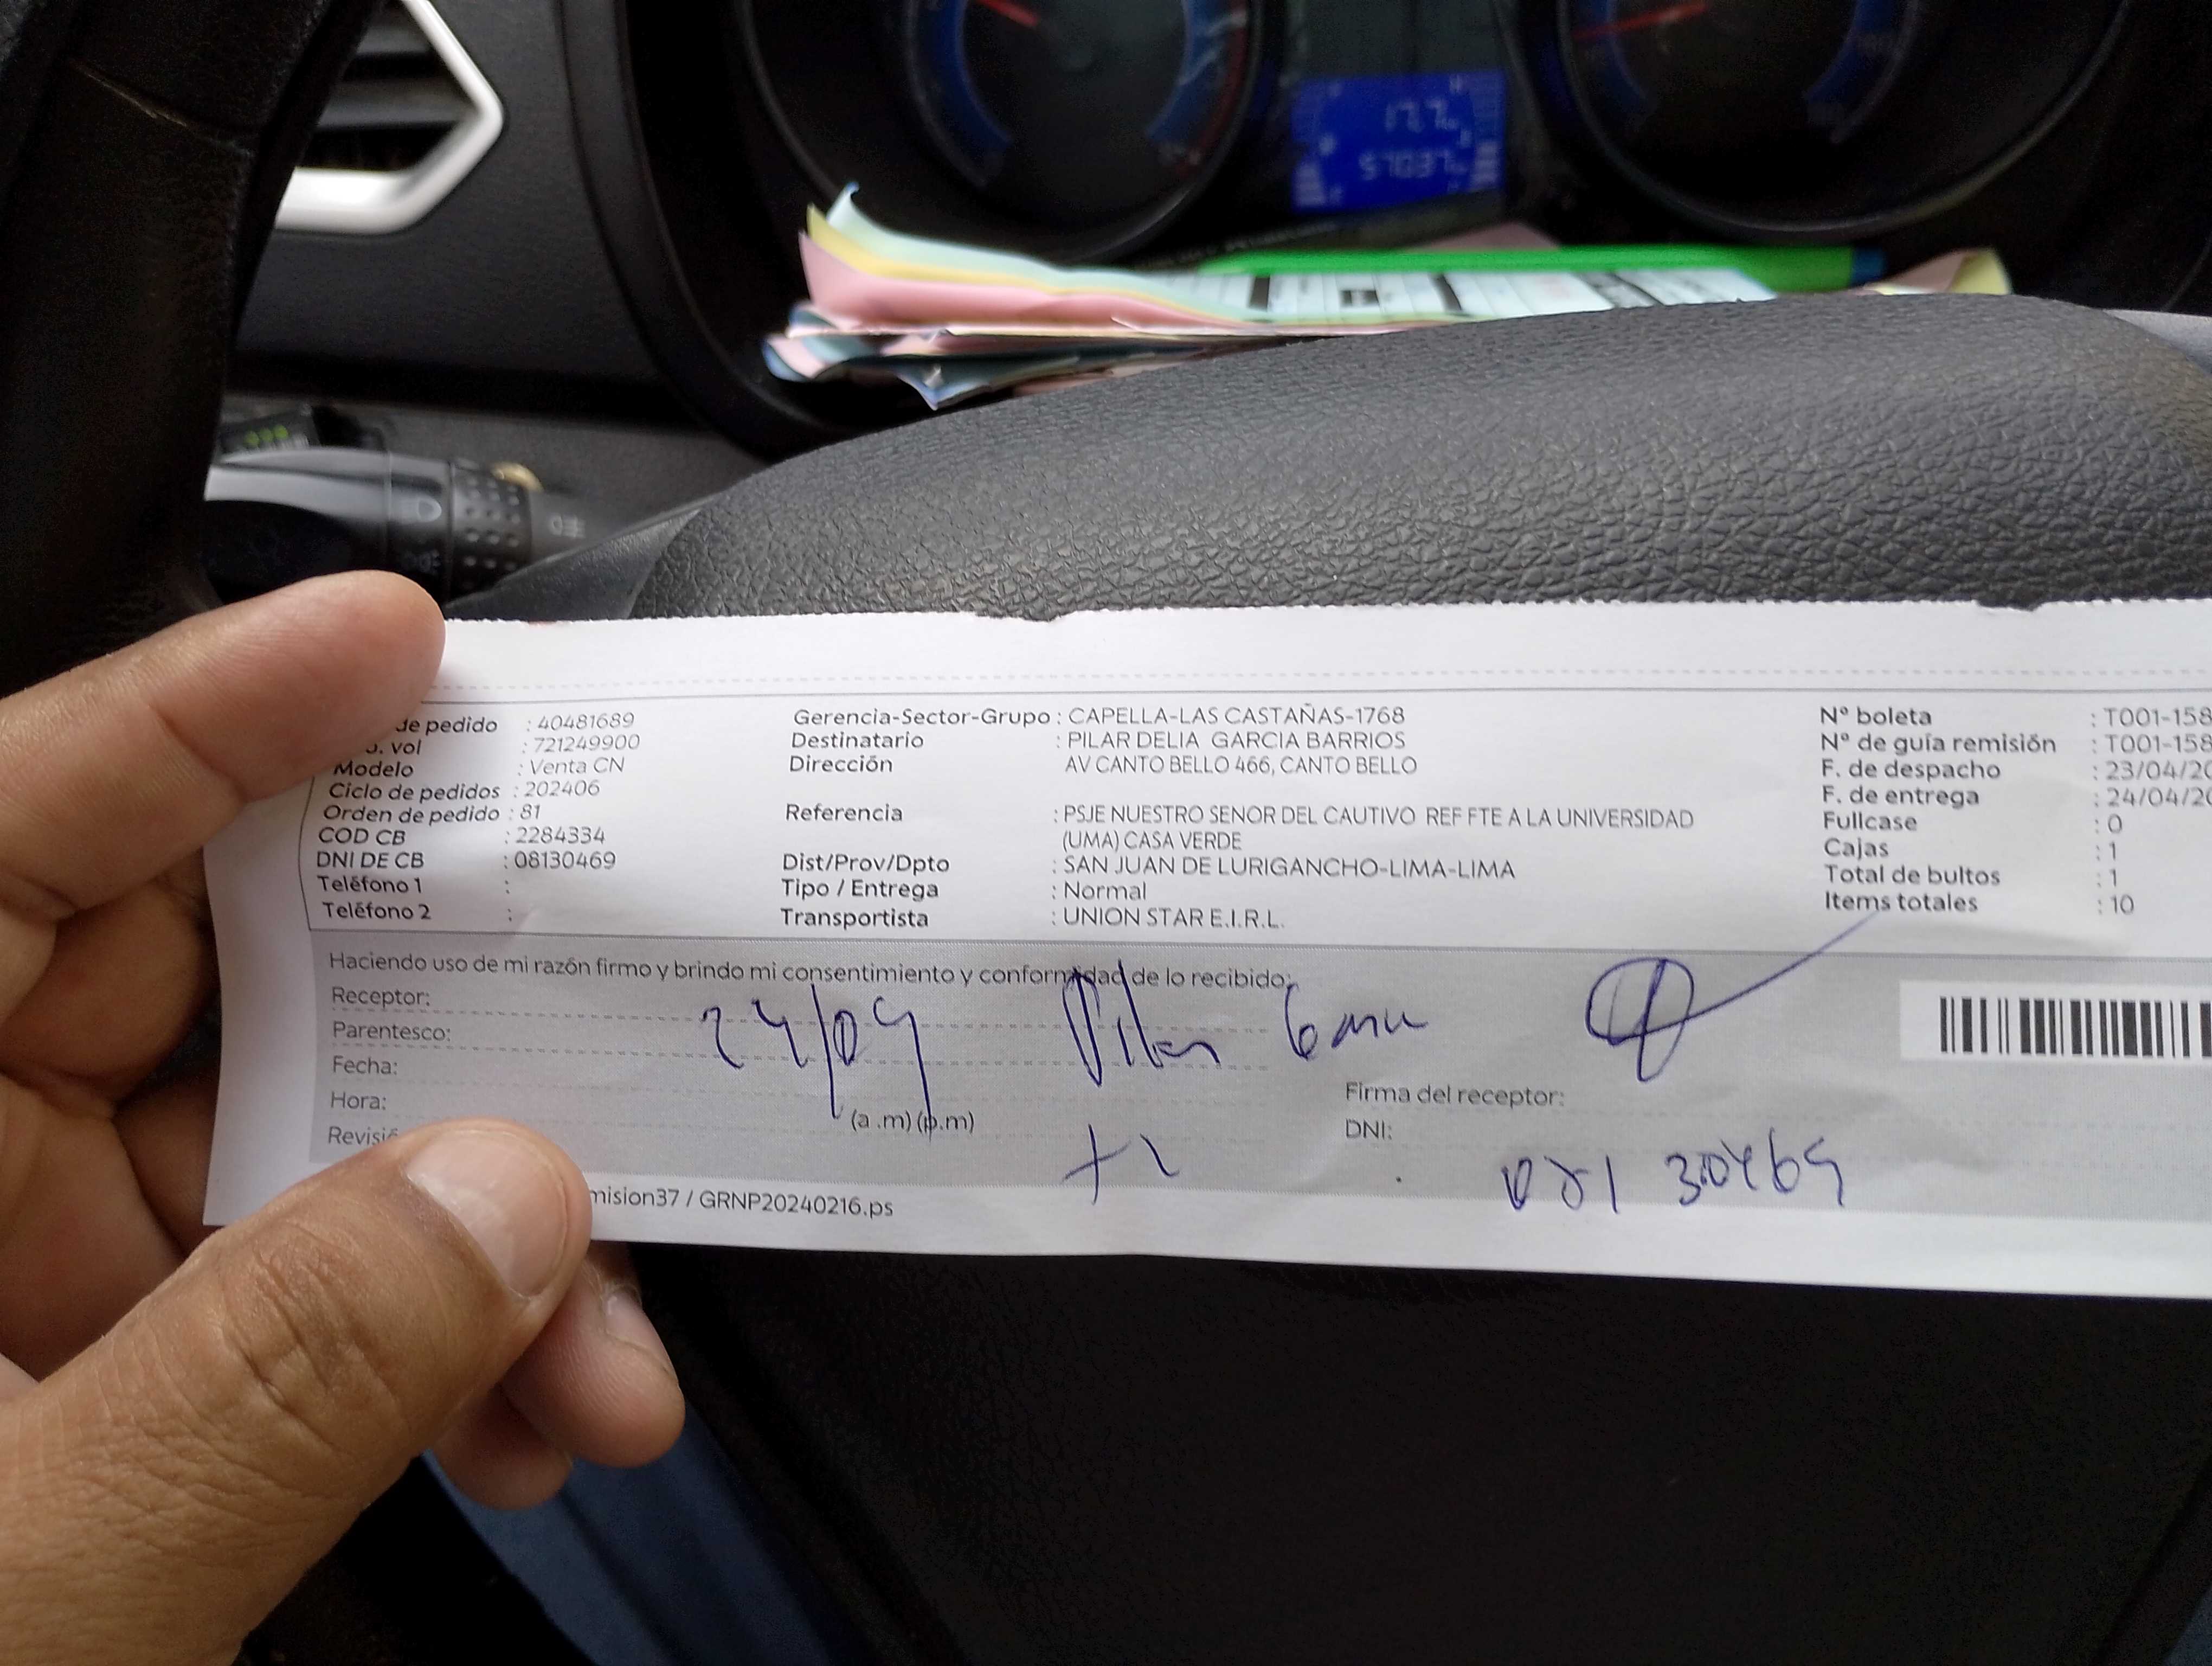 de pedido : 40481689
. vol : 721249900
Modelo : Venta CN
Ciclo de pedidos : 202406
Orden de pedido : 81
COD CB : 2284334
DNI DE CB : 08130469
Teléfono 1 :
Teléfono 2 :
Gerencia-Sector-Grupo : CAPELLA-LAS CASTAÑAS-1768
Destinatario : PILAR DELIA GARCIA BARRIOS
Dirección AV CANTO BELLO 466, CANTO BELLO
Referencia : PSJE NUESTRO SENOR DEL CAUTIVO REF FTE A LA UNIVERSIDAD
(UMA) CASA VERDE
Dist/Prov/Dpto : SAN JUAN DE LURIGANCHO-LIMA-LIMA
Tipo / Entrega : Normal
Transportista : UNION STAR E.I.R.L.
Nº boleta : T001-158
Nº de guía remisión : T001-158
F. de despacho : 23/04/20
F. de entrega : 24/04/20
Fullcase : 0
Cajas : 1
Total de bultos : 1
Items totales : 10
Haciendo uso de mi razón firmo y brindo mi consentimiento y conformidad de lo recibido:
Receptor:
Parentesco:
Fecha:
Hora: (a .m) (p.m)
Revisió
24/04 Pilar
Firma del receptor:
DNI:
08130469
mision37 / GRNP20240216.ps